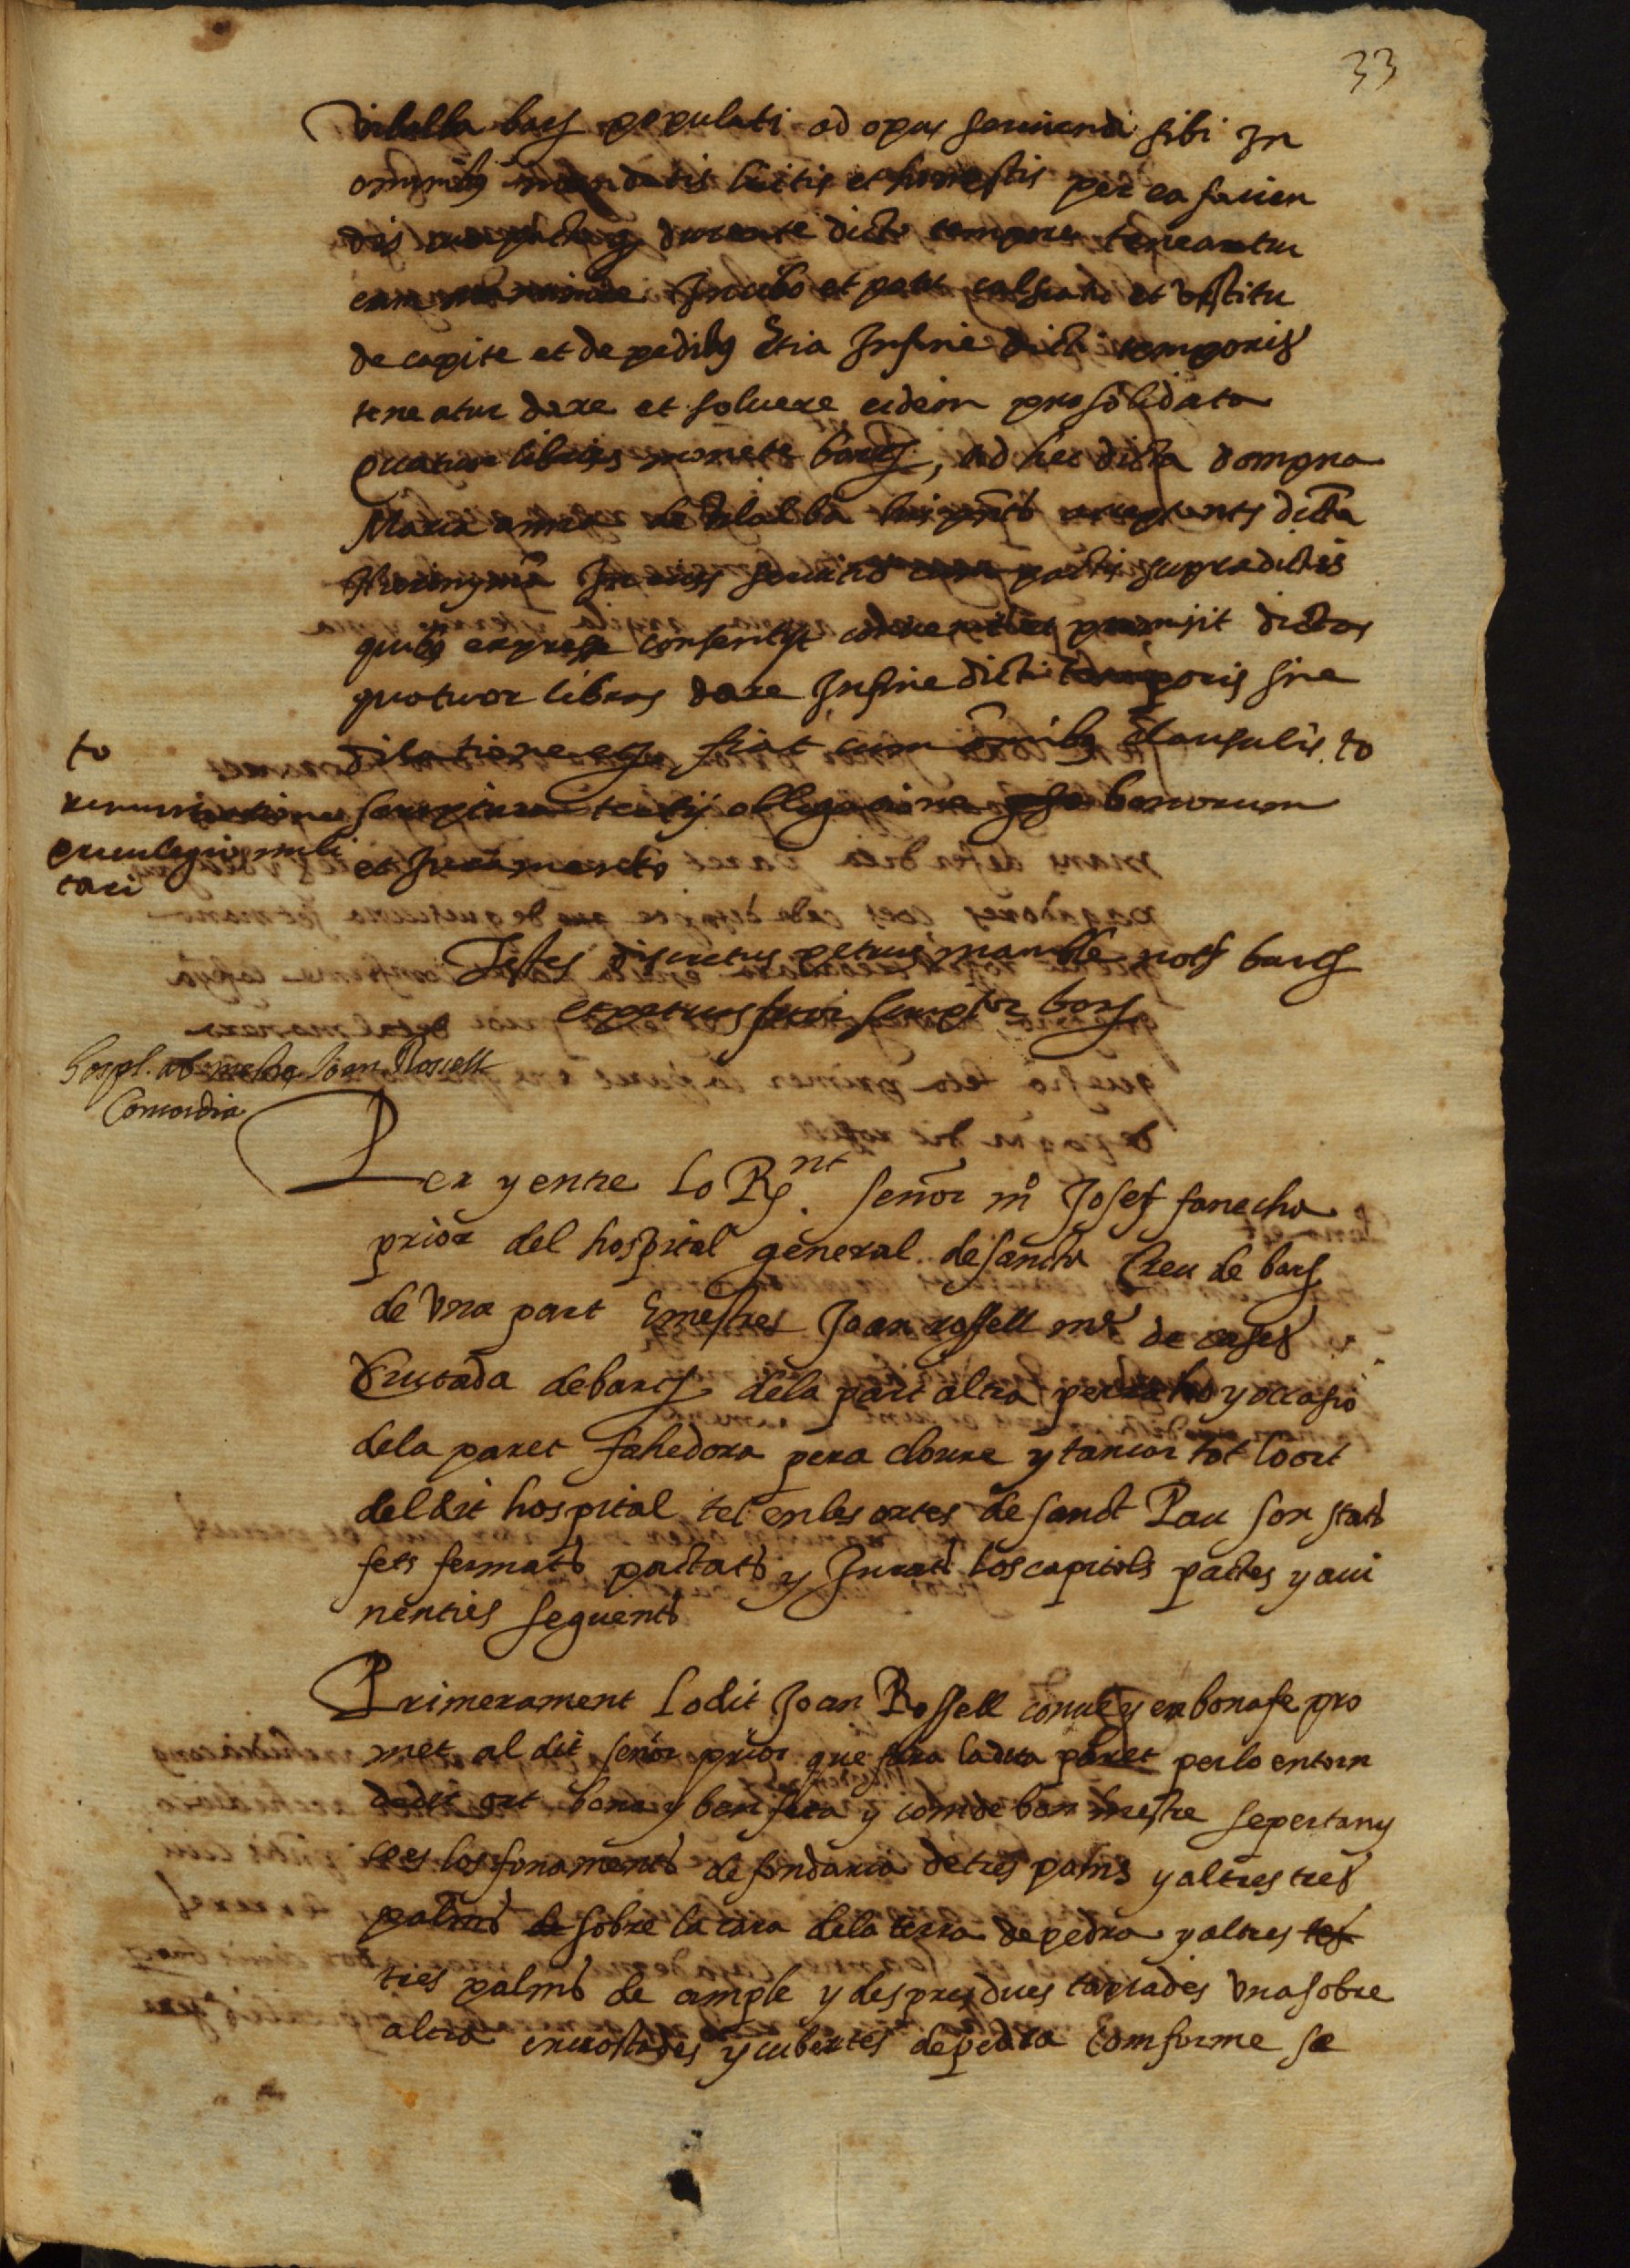 33
Vilalba barc populati ad opus seruiendi sibi In
omnibus mandatis licitis et honestis per ea facien
dis durante dicto tempore teneantur
eam Incibo et potu calsiatu et vestitu
de capite et de pedibus Etia Infine dicti temporis
teneatur dare et soluere eidem pro solidata
quatuor libras monete barc, ad hec dicta dompna
Maria anna de Vilalba his acceptans dicta
Hieronyma In eius seruitio cum pactis supradictis
quibus expresse consentiit promisit dictas
quatuor libras dare Infine dicti temporis sine
dilatione fiat cum omnibus clausulis to
scriptura tertij obligatione bonorum
et Juramento
to
renunciatione
priuilegii mili
tari
Testes discretus petrus mamble nots barc
et petrus scriptor barc
Hospl. ab mestre Joan Rossell
Concordia
Per y entre lo Rnt. señor m Josef fanecha
prior del hospital general de sancta Creu de barc
de vna part E mestres Joan rossell me de cases
Ciutada de barc de la part altra per raho y occasio
dela paret fahedora pera cloure y tancar tot lo ort
del dit hospital te en les ortes de sanct Pau son stats
fets fermats pactats y Jurats los capitols pactes y aui
nenties seguents
Primerament lo dit Joan Rossell conue y en bona fe pro
met al dit señor prior que fara la dita paret per lo entorn
de dit ort bona y ben feta y com de bon mestre se pertany
ço es los fonaments de fondaria de tres pams y altres tres
palms de sobre la cara dela terra de pedra y altres tes
tres palms de ample y despres dues tapiades vna sobre
altra encrostades y cubertes de pedra comforme se